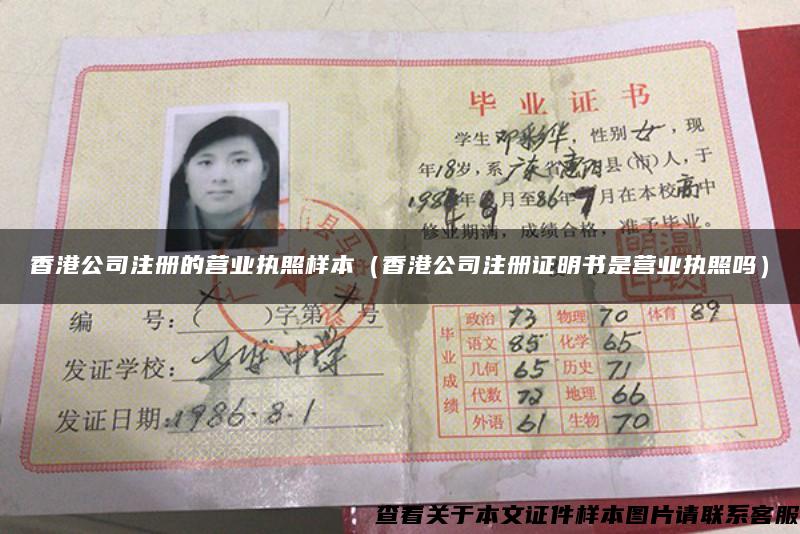 毕业证书
学生邓彩华，性别女，现
年18岁，系广东省惠阳县(市)人，于
年9月至86年7月在本校高中
修业期满，成绩合格，准予毕业。
香港公司注册的营业执照样本（香港公司注册证明书是营业执照吗）
编 号：( )字第 号
发证学校： 中学
发证日期：1986.8.1
毕业成绩
政治 73 物理 70 体育 89
语文 85 化学 65
几何 65 历史 71
代数 72 地理 66
外语 61 生物 70
查看关于本文证件样本图片请联系客服